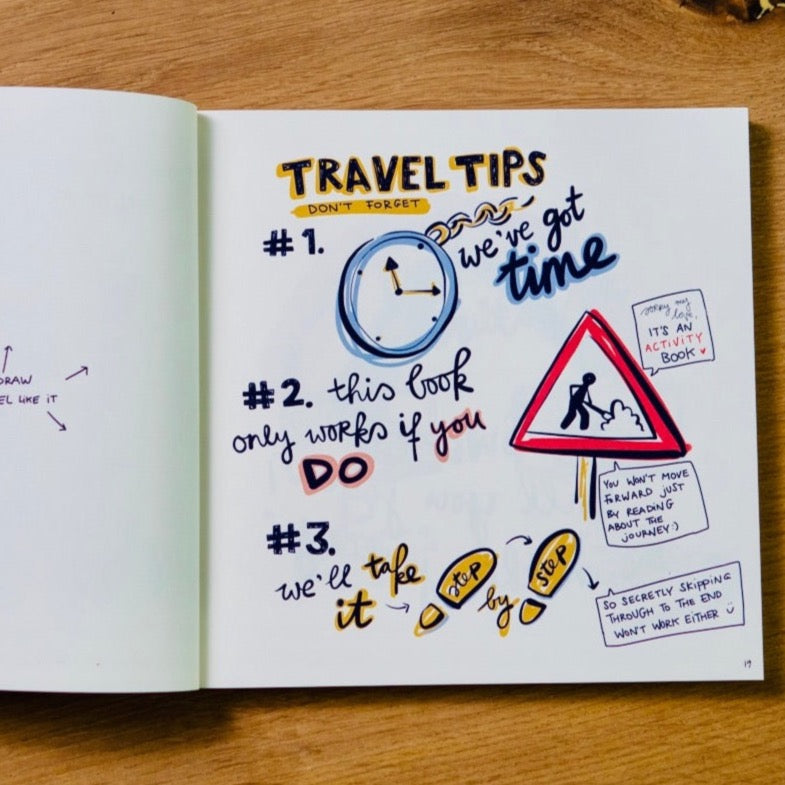 DRAW
EL LIKE IT
TRAVEL TIPS
DON'T FORGET
#1.
we've got
time
sorry my
love,
IT'S AN
ACTIVITY
BOOK ♥
#2. this book
only works if you
DO
YOU WON'T MOVE
FORWARD JUST
BY READING
ABOUT THE
JOURNEY:)
#3.
we'll take
it → step by step
SO SECRETLY SKIPPING
THROUGH TO THE END
WON'T WORK EITHER ü
19